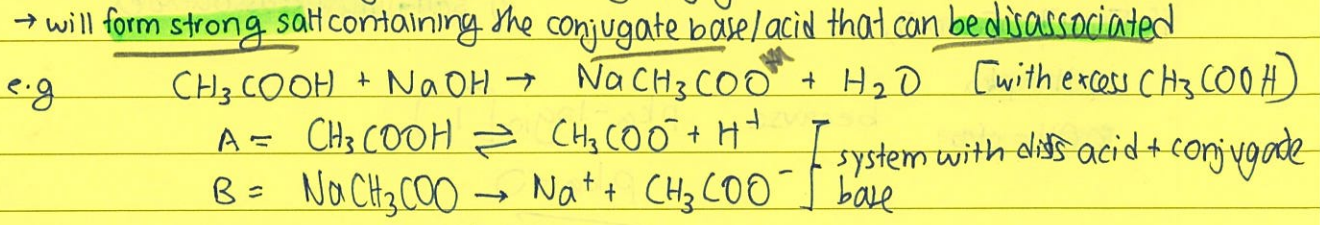 → will form strong salt containing the conjugate base/acid that can be disassociated
e.g CH₃COOH + NaOH → NaCH₃COO + H₂O [with excess CH₃COOH)
A = CH₃COOH ⇌ CH₃COO⁻ + H⁺
B = NaCH₃COO → Na⁺ + CH₃COO⁻
system with diss acid + conjugade
base